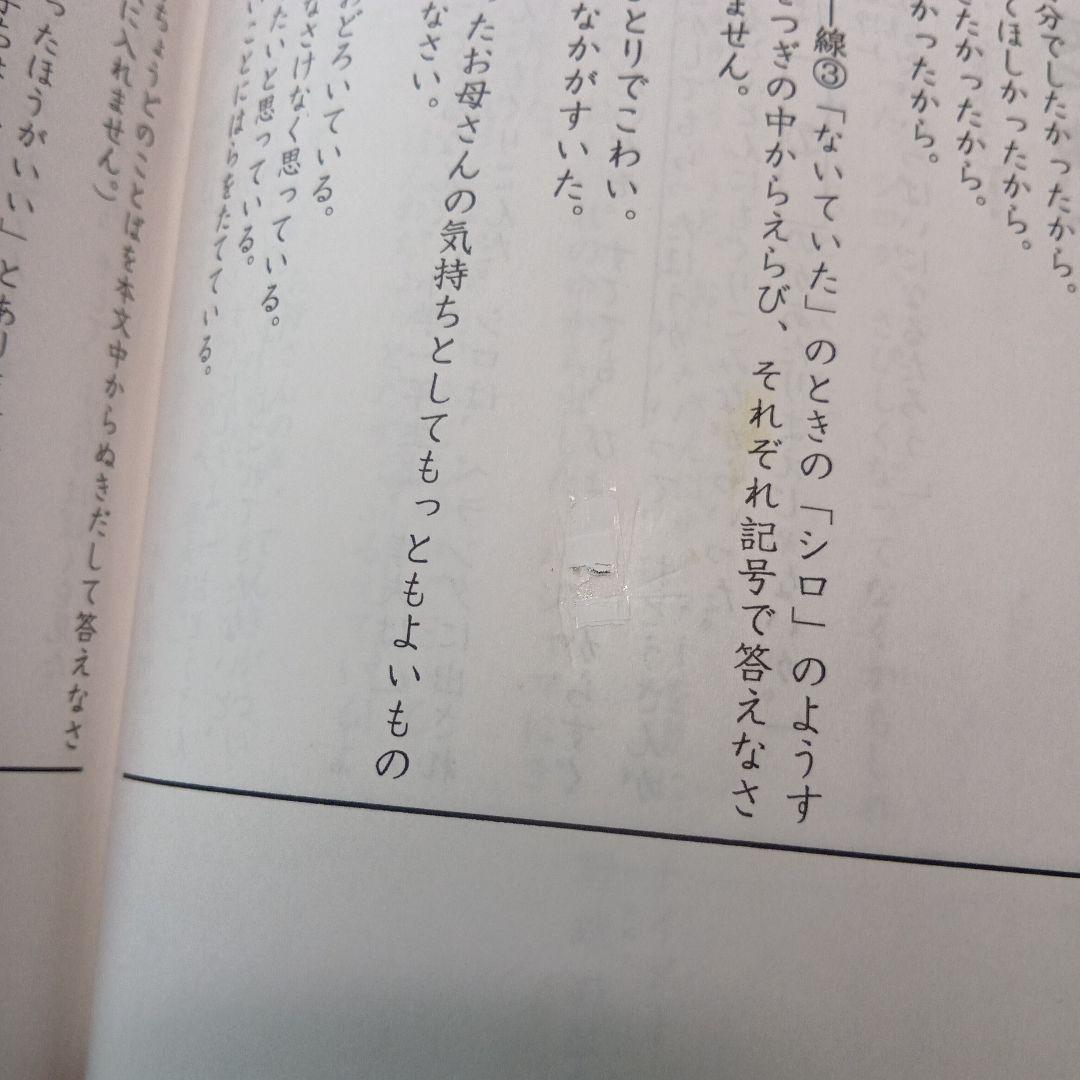 分でしたかったから。
てほしかったから。
たかったから。
かったから。
線③「ないていた」のときの「シロ」のようす
つぎの中からえらび、それぞれ記号で答えなさ
ません。
とりでこわい。
なかがすいた。
たお母さんの気持ちとしてもっともよいもの
なさい。
おどろいている。
なさけなく思っている。
たいと思っている。
いことにはらをたてている。
ちょうどのことばを本文中からぬきだして答えなさ
に入れません。）
ったほうがいい」とあり